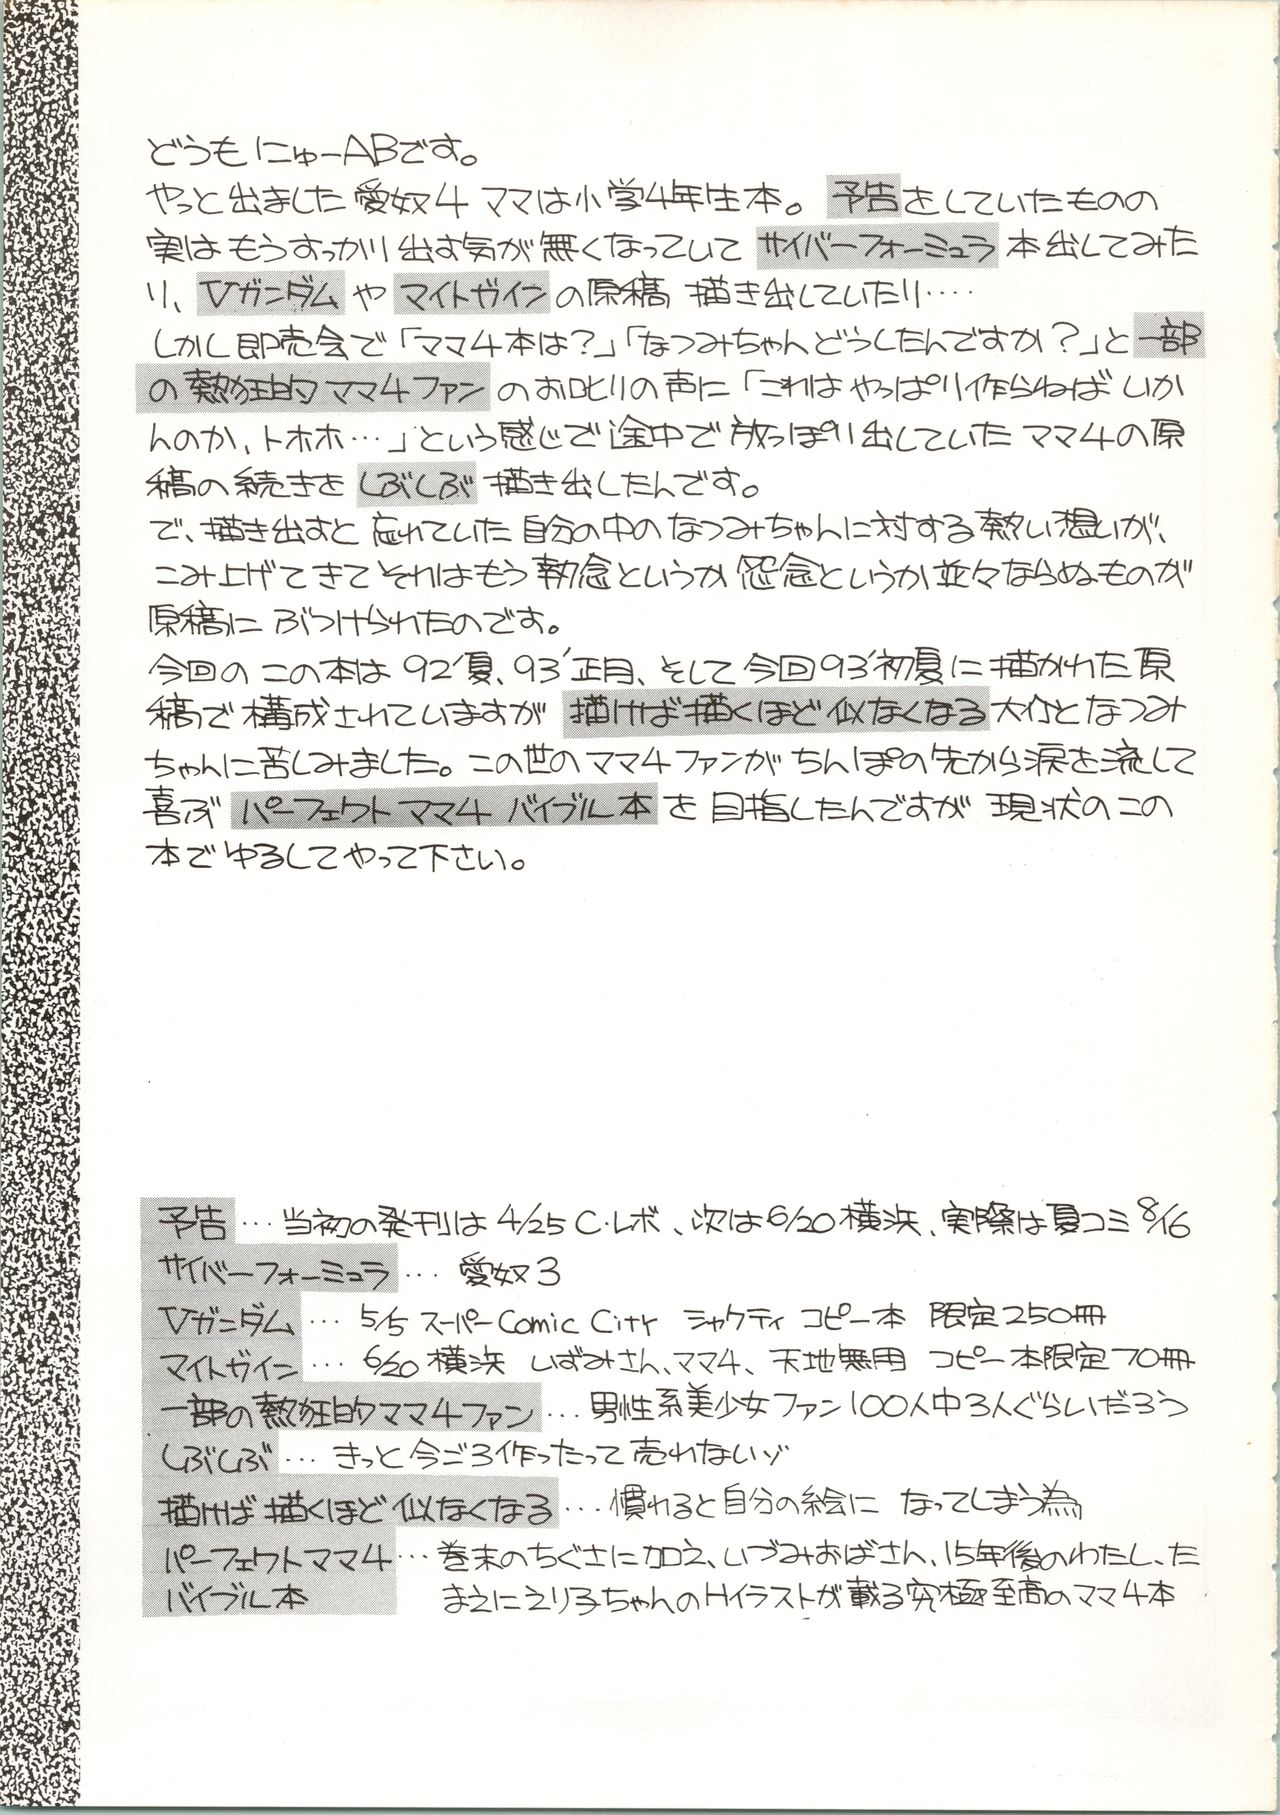 どうも にゅーABです。
やっと出ました 愛奴4 ママは小学4年生本。 予告をしていたものの
実はもうすっかり出す気が無くなっていて サイバーフォーミュラ 本出してみた
り、Vガンダム や マイトガイン の原稿 描き出していたり‥‥
しかし即売会で「ママ4本は?」「なつみちゃんどうしたんですか?」と 一部
の熱狂的ママ4ファン のお叱りの声に「これは やっぱり作らねば いか
んのか、トホホ…」という感じで途中で放っぽり出していたママ4の原
稿の続きを しぶしぶ 描き出したんです。
で、描き出すと 忘れていた自分の中のなつみちゃんに対する熱い想いが、
こみ上げてきてそれはもう 執念というか 怨念というか並々ならぬものが
原稿に ぶつけられたのです。
今回の この本は 92'夏、93'正月、そして今回93'初夏に描かれた原
稿で構成されていますが 描けば描くほど似なくなる 大介となつみ
ちゃんに苦しみました。この世のママ4ファンがちんぽの先から涙を流して
喜ぶ パーフェクト ママ4 バイブル本 を目指したんですが 現状のこの
本でゆるしてやって下さい。
予告 … 当初の発刊は 4/25 C・レボ、次は6/20横浜、実際は夏コミ 8/16
サイバーフォーミュラ … 愛奴3
Vガンダム … 5/5 スーパーComic City シャクティ コピー本 限定250冊
マイトガイン … 6/20 横浜 いずみさん、ママ4、天地無用 コピー本限定70冊
一部の熱狂的ママ4ファン … 男性系美少女ファン100人中3人ぐらいだろう
しぶしぶ … きっと今ごろ作ったって売れないゾ
描けば描くほど似なくなる … 慣れると自分の絵に なってしまう為
パーフェクトママ4 … 巻末のちぐさに加え、いづみおばさん、15年後のわたし、た
バイブル本 まえにえり子ちゃんのHイラストが載る究極至高のママ4本